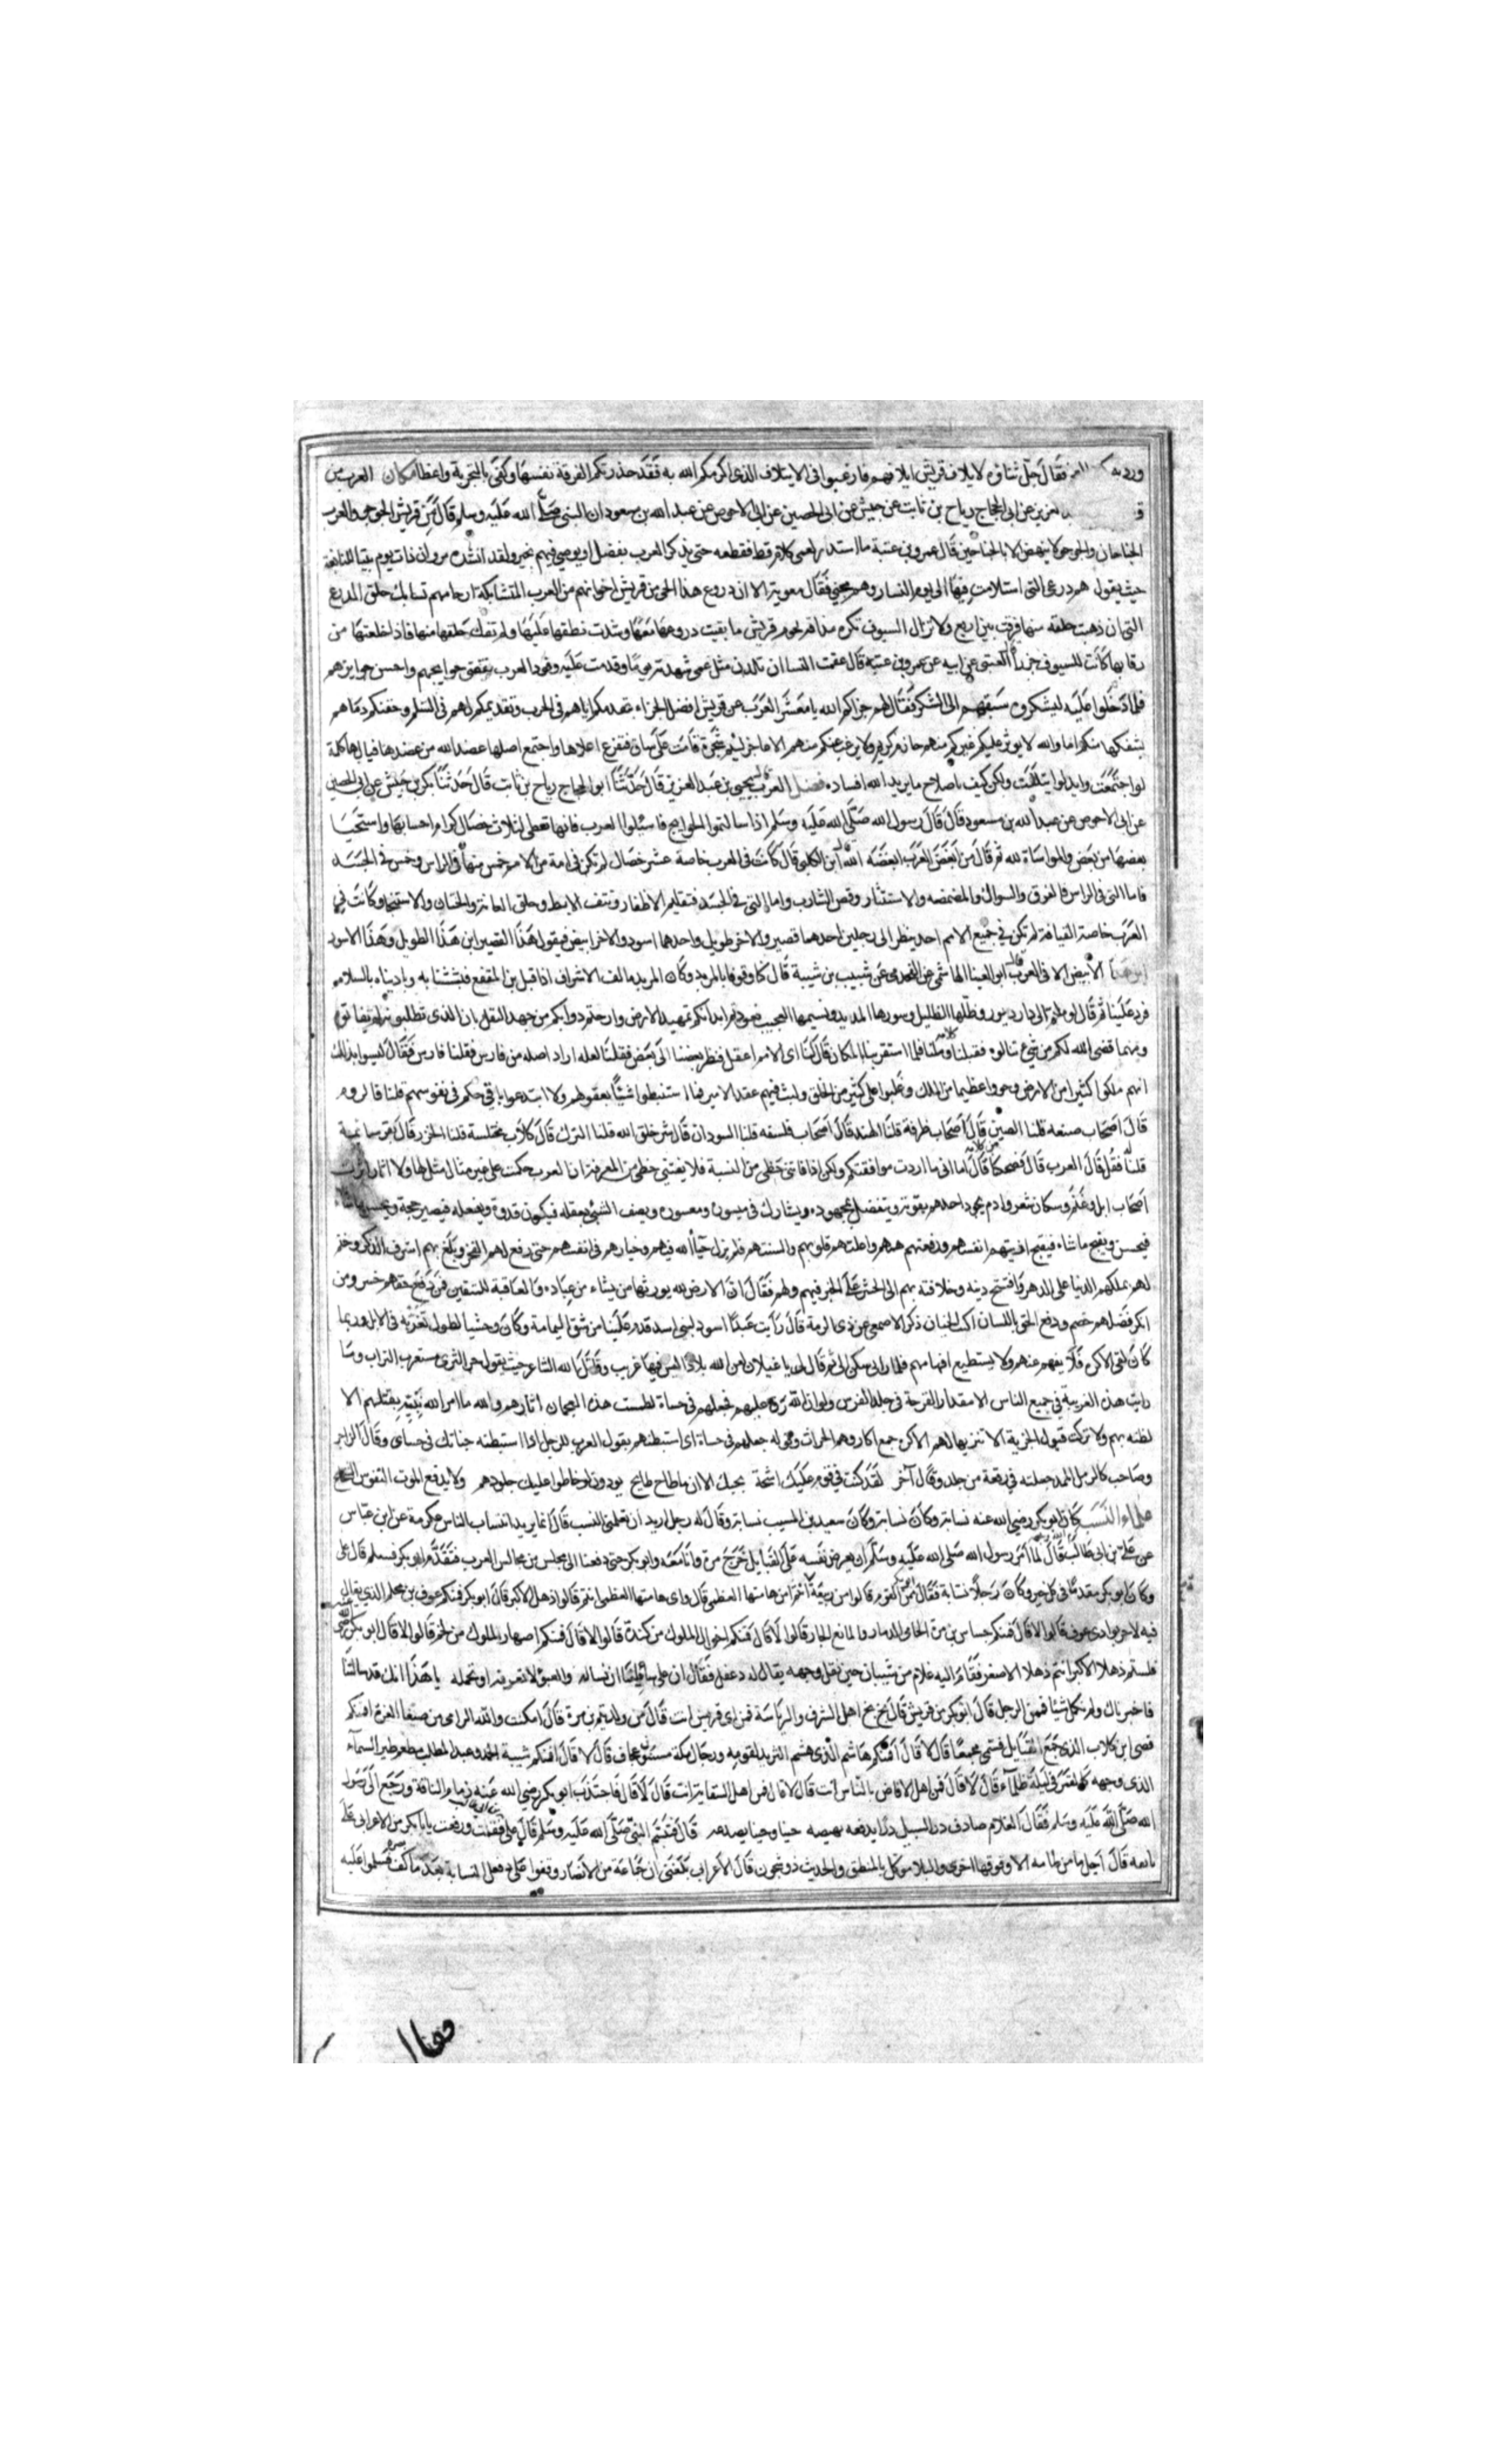 فقال جل ثناؤه لايلاف قريش ايلافهم فارغبوا فى الايتلاف الذى اكرمكم الله به فقد حذرتكم الفرقة نفسها وكفى بالتجربة واعظا كان العرب من
عن ابى الحجاج رياح بن ثابت عن بكر بن خنيش عن ابى الحصين عن ابى الاحوص عن عبد الله بن مسعود ان النبى صلى الله عليه وسلم قال قريش الجوجو والعرب
الجناحان والجوجو لا ينهض الا بالجناحين قال عمرو بن عتبة ما استدر لعمى كلام قط فقطعه حتى يذكر العرب بفضل او يوصى فيهم بخير ولقد انشده مروان ذات يوم بيتا للنابغة
حيث يقول هم درعى التى استلامت فيها الى يوم النسار وهم مجنى فقال معوية الا ان دروع هذا الحى من قريش اخوانهم من العرب المتشابكة ارحامهم تشابك حلق الدرع
التى ان ذهبت حلقه منها فرقت بين اربع ولا تزال السيوف تكره مذاقة لحوم قريش ما بقيت دروعها معها وشدت نطقها عليها ولم تفك حلقها منها فاذا خلعتها من
رقابها كانت للسيوف جزرا العتبى عن ابيه عن عمرو بن عتبة قال عقمت النسا ان تلدن مثل عمى شهدته يوما وقدمت عليه وفود العرب فقضى حوايجهم واحسن جوايزهم
فلما دخلوا عليه ليشكروه سبقهم الى الشكر فقال لهم جزاكم الله يا معشر العرب عن قريش افضل الجزاء بتقدمكم اياهم فى الحرب وتقديمكم لهم فى السلم وحقنكم دماهم
بسفكها منكم اما والله لا يوثر عليكم غيركم منهم حازم كريم ولا يرغب عنكم منهم الا عاجز لئيم شجرة قامت على ساق فتفرع اعلاها واجتمع اصلها عضد الله من عضدها فيالها كلمة
لو اجتمعت وايد لو ايتلفت ولكن كيف باصلاح ما يريد الله افساده فضل العرب يحيى بن عبد العزيز قال حدثنا ابو الحجاج رياح بن ثابت قال حدثنا بكر بن خنيش عن ابى الحصين
عن ابى الاحوص عن عبد الله بن مسعود قال قال رسول الله صلى الله عليه وسلم اذا سالتموا الحوايج فاسئلوا العرب فانها تعطى لثلاث خصال كرام احسابها واستحيا
بعضها من بعض والمواساة لله ثم قال من ابغض العرب ابغضه الله ابن الكلبى قال كانت فى العرب خاصة عشر خصال لم تكن فى امة من الامم خمس منها فى الراس وخمس فى الجسد
فاما التى فى الراس فالفرق والسواك والمضمضه والاستنثار وقص الشارب واما التى فى الجسد فتقليم الاظفار ونتف الابط وحلق العانة والختان والاستنجا وكانت فى
العرب خاصة القيافة لم تكن فى جميع الامم احد ينظر الى رجلين احدهما قصير والاخر طويل واحدهما اسود والاخر ابيض فيقول هذا القصير ابن هذا الطويل وهذا الاسود
ابن هذا الابيض الا فى العرب قال ابو العينا الهاشمى عن القحذمى عن شبيب بن شيبة قال كنا وقوفا بالمربد وكان المربد مالف الاشراف اذ اقبل بن المقفع فبششنا به وباديناه بالسلام
فرد علينا ثم قال لو ملتم الى دار نيروز وظلها الظليل وسورها المديد ونسيمها العجيب فعودتم ابدانكم تمهيد الارض وارحتم دوابكم من جهد الثقل فان الذى تطلبونه لم يفاتوه
ومهما قضى الله لكم من شئ تنالوه فقبلنا وملنا فلما استقر بنا المكان قال لنا اى الامم اعقل فنظر بعضنا الى بعض فقلنا لعله اراد اصله من فارس فقلنا فارس فقال ليسوا بذلك
انهم ملكوا كثيرا من الارض وحووا عظيما من الملك وغلبوا على كثير من الخلق ولبث فيهم عقد الامر فما استنبطوا شيئا بعقولهم ولا ابتدعوا باقى حكم فى نفوسهم قلنا فالروم
قال اصحاب صنعه قلنا الصين قال اصحاب طرفة قلنا الهند قال اصحاب فلسفه قلنا السودان قال شر خلق الله قلنا الترك قال كلاب مختلسة قلنا الخزر قال بقر سائمة
قلنا فقل قال العرب قال فضحكنا قال اما انى ما اردت موافقتكم ولكن اذا فاتنى حظى من النسبة فلا يفوتنى حظى من المعرفة ان العرب حكمت على غير مثال مثل لها ولا اثار اثرت
اصحاب ابل وغنم وسكان شعر وادم يجود احدهم بقوته ويتفضل بمجهوده ويشارك فى ميسوره ومعسوره ويصف الشئ بعقله فيكون قدوة ويفعله فيصير حجة ويحسن ما شاء
فيحسن ويقبح ما شاء فيقبح ادبتهم انفسهم ورفعتهم هممهم واعلتهم قلوبهم والسنتهم فلم يزل حبا الله فيهم وخيارهم فى انفسهم حتى رفع لهم الفخر وبلغ بهم اشرف الذكر وختم
لهم بملكهم الدنيا على الدهر وافتتح دينه وخلافته بهم الى الحشر على الخير فيهم ولهم فقال ان الارض لله يورثها من يشاء من عباده والعاقبة للمتقين فمن دفع حقهم خسر ومن
انكر فضلهم خصم ودفع الحق باللسان اكبت للجنان ذكر الاصمعى عن ذى الرمة قال رايت عبدا اسود لبنى اسد قدم علينا من شق اليمامة وكان وحشيا لطول تغربه فى الابل وربما
كان لقى الاكره فلا يفهم عنهم ولا يستطيع افهامهم فلما رانى سكن الى ثم قال لى يا غيلان لعن الله بلادا ليس فيها غريب وقاتل الله الشاعر حيث يقول حر الثرى مستعرب التراب وما
رايت هذه العربية فى جميع الناس الا مقدار القرحة فى جلد الفرس ولولا ان الله رق عليهم فجعلهم فى حشاه لطمست هذه العجمان اثارهم والله ما امر الله نبيه بقتلهم الا
لظنه بهم ولا ترك قبول الجزية الا تنزيها لهم الاكرة جمع اكار وهم الحراث وقوله جعلهم فى حشاه اى استبطنهم يقول العرب للرجل اذا استبطنه جناتك فى حشاى وقال الراجز
وصاحب كالدمل الممد جعلته فى رقعة من جلد وقال آخر لقد كنت فى قوم عليك اشحة بحبك الا ان ما طاح طايح يودون لو خاطوا عليك جلودهم ولا يدفع الموت النفوس الشحايح
علماء النسب كان ابو بكر رضى الله عنه نسابة وكان سعيد بن المسيب نسابة وقال له رجل اريد ان تعلمنى النسب قال انما تريد ان تساب الناس عكرمة عن ابن عباس
عن على بن ابى طالب قال لما امر رسول الله صلى الله عليه وسلم ان يعرض نفسه على القبايل خرج مرة وانا معه وابو بكر حتى دفعنا الى مجلس من مجالس العرب فتقدم ابو بكر فسلم قال على
وكان ابو بكر مقدما فى كل خير وكان رجلا نسابة فقال ممن القوم قالوا من ربيعة قال امن هامتها العظمى قال واى هامتها العظمى انتم قالوا ذهل الاكبر قال ابو بكر فمنكم عوف بن محلم الذى يقال
فيه لا حر بوادى عوف قالوا لا قال فمنكم جساس بن مرة الحامى الذمار والمانع الجار قالوا لا قال فمنكم اخوال الملوك من كندة قالوا لا قال فمنكم اصهار الملوك من لخم قالوا لا قال ابو بكر
فلستم ذهلا الاكبر انتم ذهلا الاصغر فقام اليه غلام من شيبان حين بقل وجهه يقال له دغفل فقال ان على سائلنا ان نساله والعبؤ لا تعرفه او تحمله يا هذا انك قد سالتنا
فاخبرناك ولم نكتمك شيئا فممن الرجل قال ابو بكر من قريش قال بخ بخ اهل الشرف والرياسة فمن اى قريش انت قال من ولد تيم بن مرة قال امكنت والله الرامى من صفا الثغرة افمنكم
قصى ابن كلاب الذى جمع القبايل فسمى مجمعا قال لا قال افمنكم هاشم الذى هشم الثريد لقومه ورجال مكة مسنتون عجاف قال لا قال افمنكم شيبة الحمد عبد المطلب مطعم طير السماء
الذى وجهه كالقمر فى ليلة ظلماء قال لا قال فمن اهل الافاضه بالناس انت قال لا قال فمن اهل السقاية انت قال لا قال فاجتذب ابو بكر رضى الله عنه زمام الناقة ورجع الى رسول
الله صلى الله عليه وسلم فقال الغلام صادف درا السيل درا يدفعه يهيضه حينا وحينا يصدعه قال فتبسم النبى صلى الله عليه وسلم قال على فقلت وقعت يا ابا بكر من الاعرابى على
باقعة قال اجل ما من طامه الا وفوقها اخرى والبلا موكل بالمنطق والحديث ذو شجون قال الاعراب بلغنى ان جماعة من الانصار وقفوا على دغفل النسابة بعد ما كف فسلموا عليه